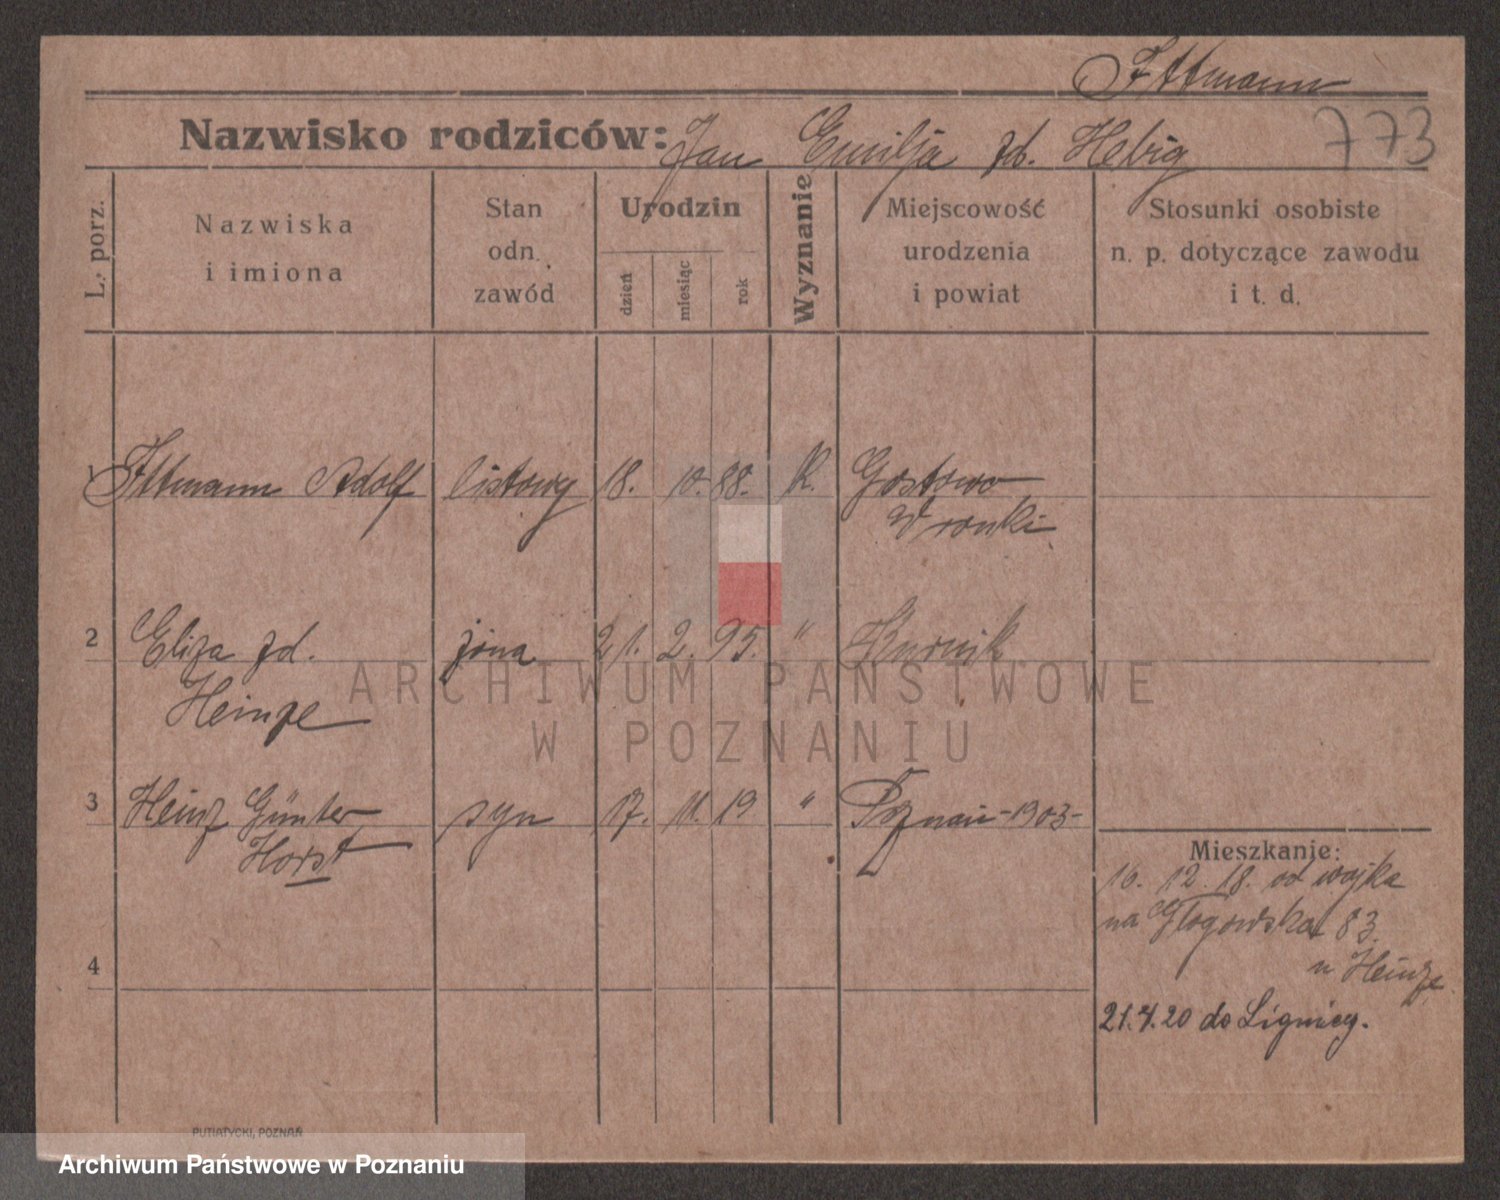 Ittmann
773
Nazwisko rodziców: Jan Emilja zd. Hebig
L. porz.
Nazwiska
i imiona
Stan
odn.
zawód
Urodzin
dzień
miesiąc
rok
Wyznanie
Miejscowość
urodzenia
i powiat
Stosunki osobiste
n. p. dotyczące zawodu
i t. d.
1 Ittmann Adolf listowy 18. 10. 88. K.
Wronki
2 Eliza zd. żona 21. 2. 95. " Kurnik
Heinze
3 Heinz Günter syn 17. 11. 19 " Poznań -1903-
Horst
4
Mieszkanie:
16. 12. 18. od wojka
na Głogowska 83
u Heinze
21.4.20 do Lignicy.
ARCHIWUM PAŃSTWOWE
W POZNANIU
PUTIATYCKI, POZNAŃ
Archiwum Państwowe w Poznaniu